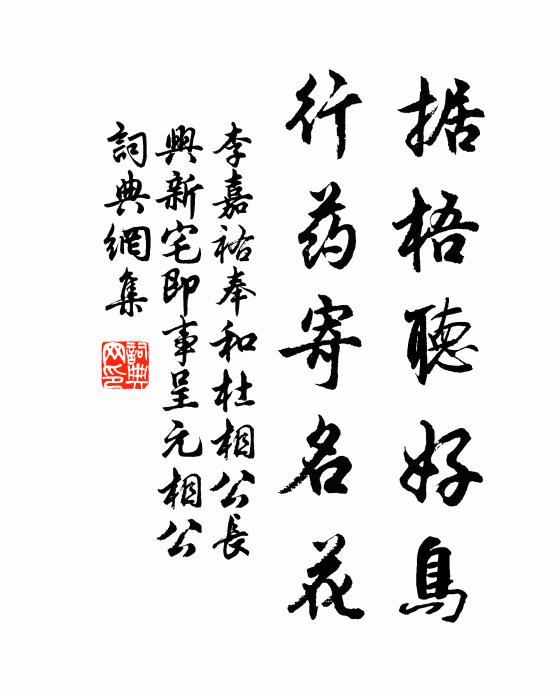 据梧聽好鳥
行药寄名花
李嘉祐奉和杜相公長
興新宅即事呈元相公
詞典網集
詞典
网印